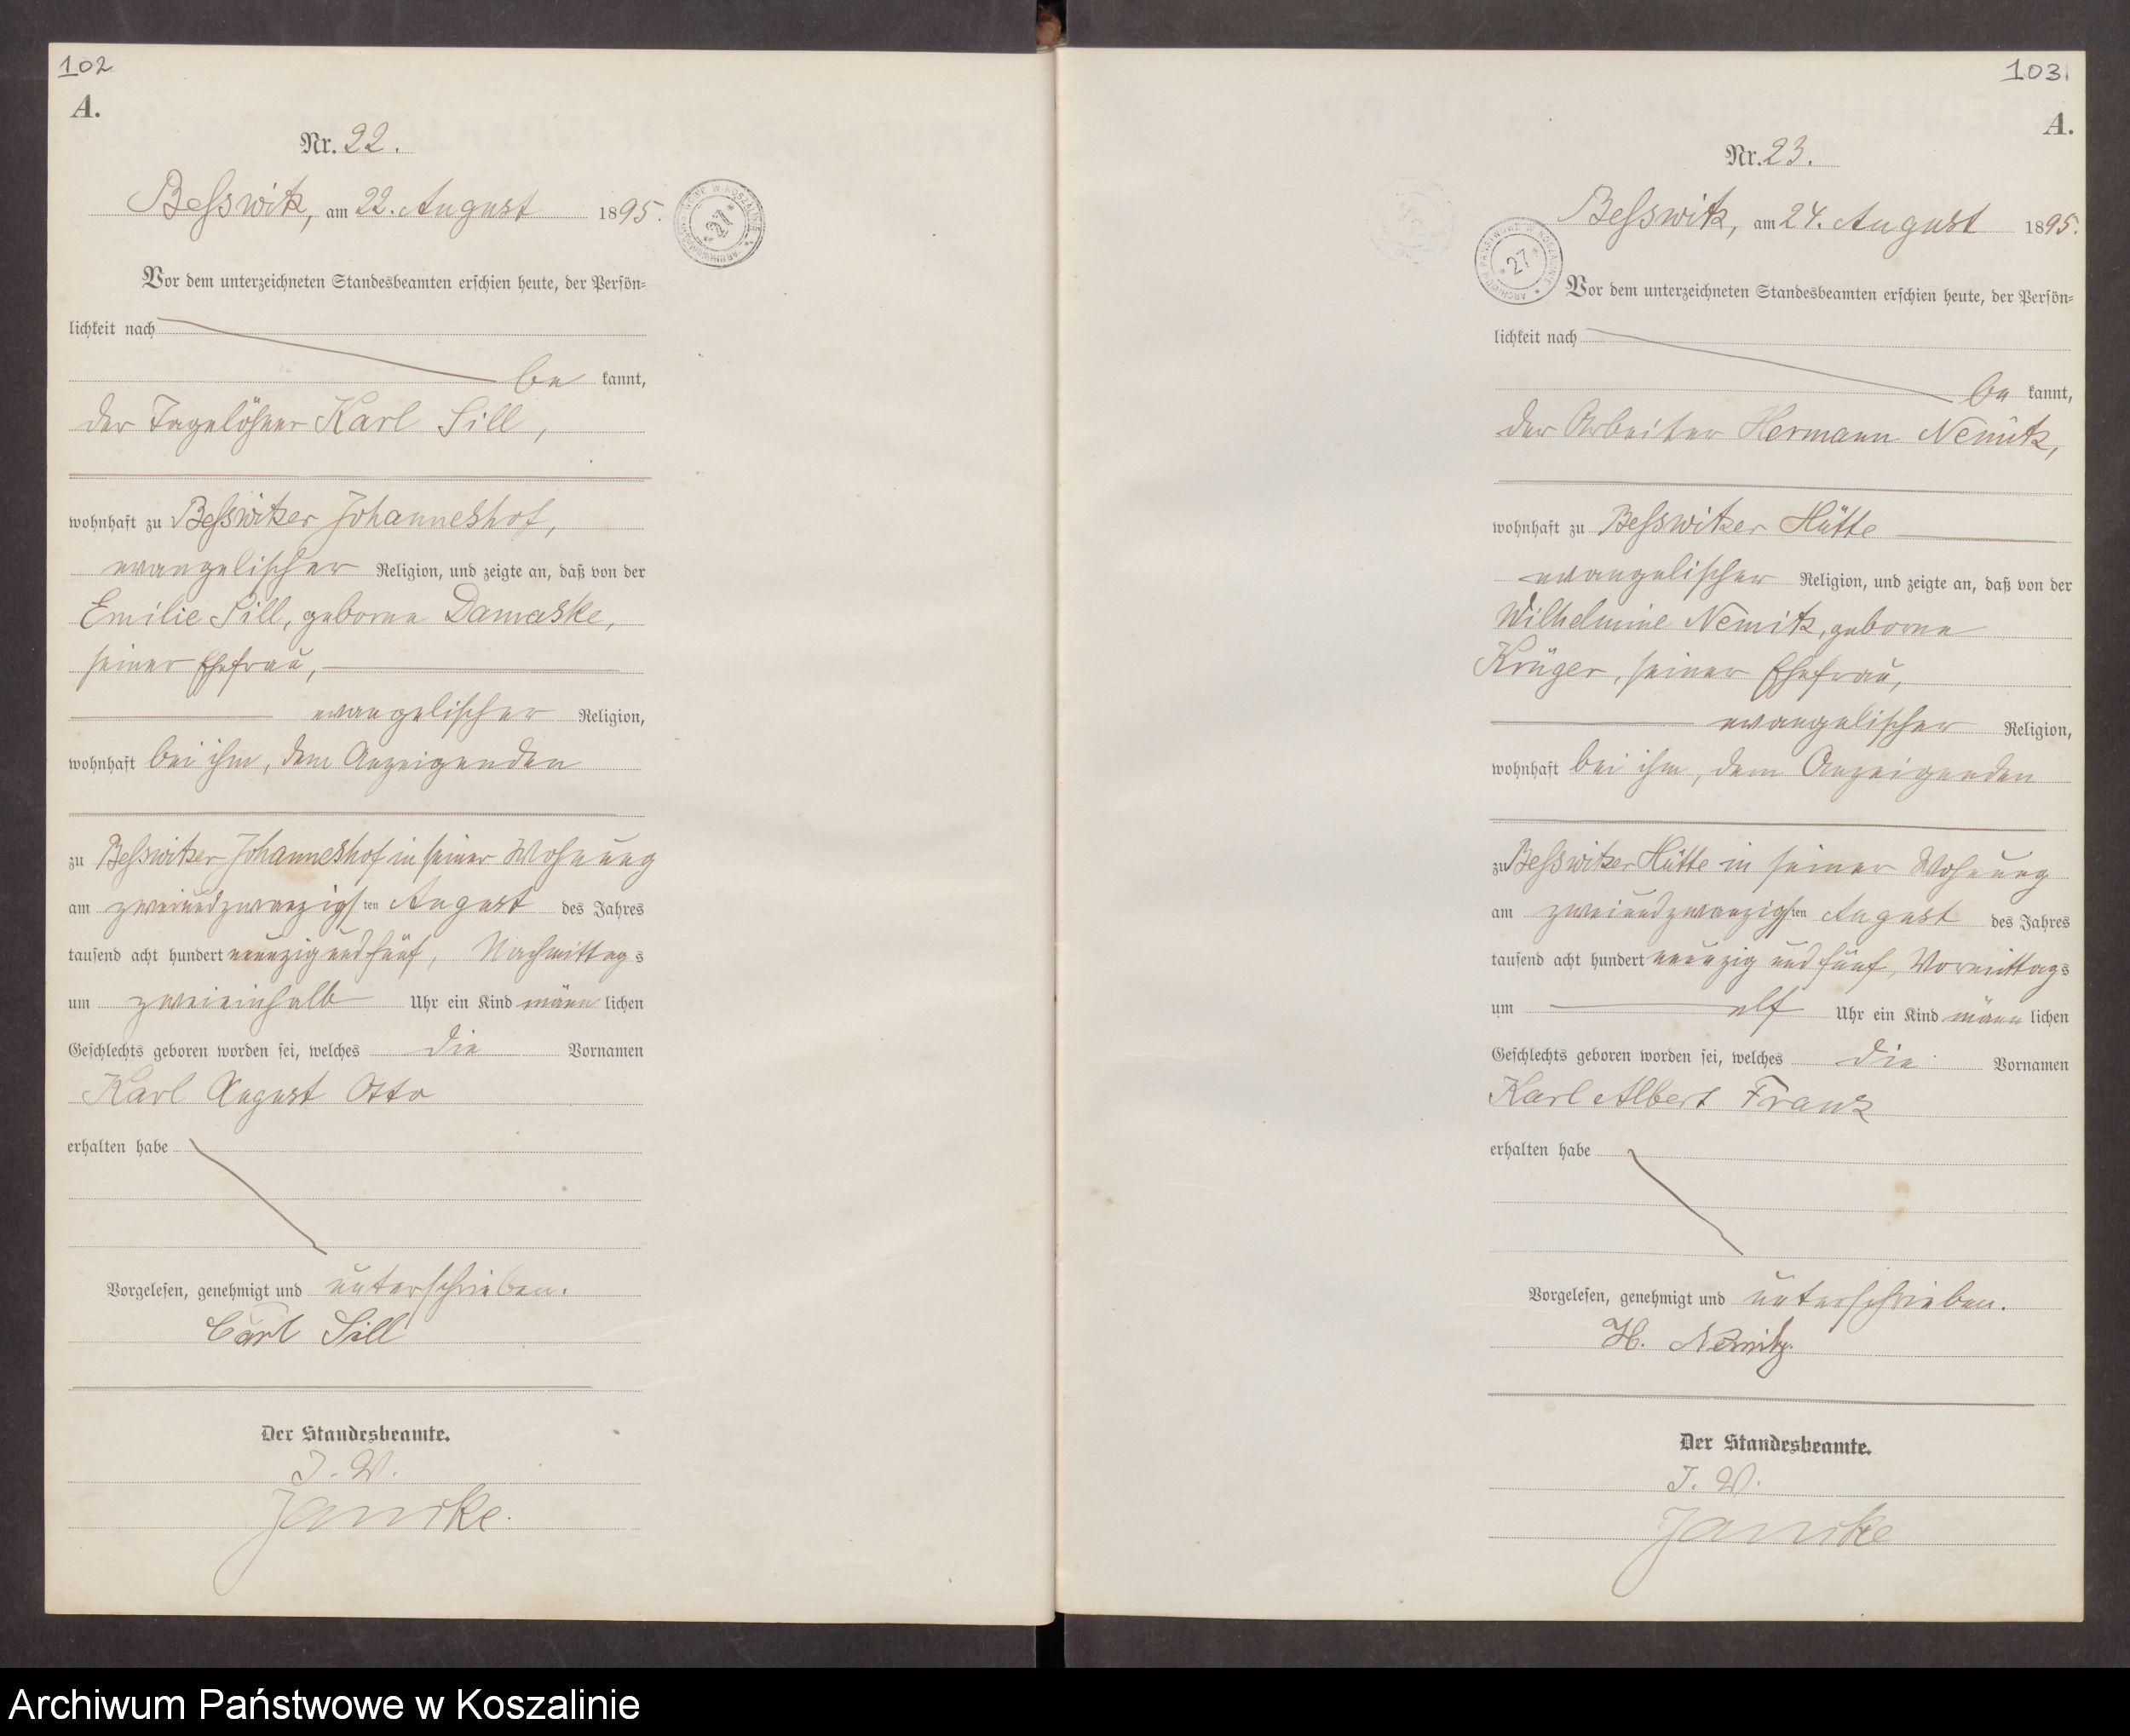 102
A.
Nr. 22.
Beßwitz, am 22. August 1895.
ARCHIWUM PAŃSTWOWE W KOSZALINIE * 27 *
Vor dem unterzeichneten Standesbeamten erschien heute, der Persön=
lichkeit nach
be kannt,
der Tagelöhner Karl Sill,
wohnhaft zu Beßwitzer Johanneshof,
evangelischer Religion, und zeigte an, daß von der
Emilie Sill, geborne Damaske,
seiner Ehefrau,
evangelischer Religion,
wohnhaft bei ihm, dem Anzeigenden
zu Beßwitzer Johanneshof in seiner Wohnung
am zweiundzwanzigsten August des Jahres
tausend acht hundert neunzig und fünf, Nachmittags
um zweieinhalb Uhr ein Kind männlichen
Geschlechts geboren worden sei, welches die Vornamen
Karl August Otto
erhalten habe
Vorgelesen, genehmigt und unterschrieben.
Carl Sill
Der Standesbeamte.
J. V.
103
A.
Nr. 23.
Beßwitz, am 24. August 1895.
ARCHIWUM PAŃSTWOWE W KOSZALINIE * 27 *
Vor dem unterzeichneten Standesbeamten erschien heute, der Persön=
lichkeit nach
be kannt,
der Arbeiter Hermann Nemitz,
wohnhaft zu Beßwitzer Hütte
evangelischer Religion, und zeigte an, daß von der
Wilhelmine Nemitz, geborne
Krüger, seiner Ehefrau,
evangelischer Religion,
wohnhaft bei ihm, dem Anzeigenden
zu Beßwitzer Hütte in seiner Wohnung
am zweiundzwanzigsten August des Jahres
tausend acht hundert neunzig und fünf, Vormittags
um elf Uhr ein Kind männlichen
Geschlechts geboren worden sei, welches die Vornamen
Karl Albert Franz
erhalten habe
Vorgelesen, genehmigt und unterschrieben.
H. Nemitz.
Der Standesbeamte.
J. V.
Archiwum Państwowe w Koszalinie